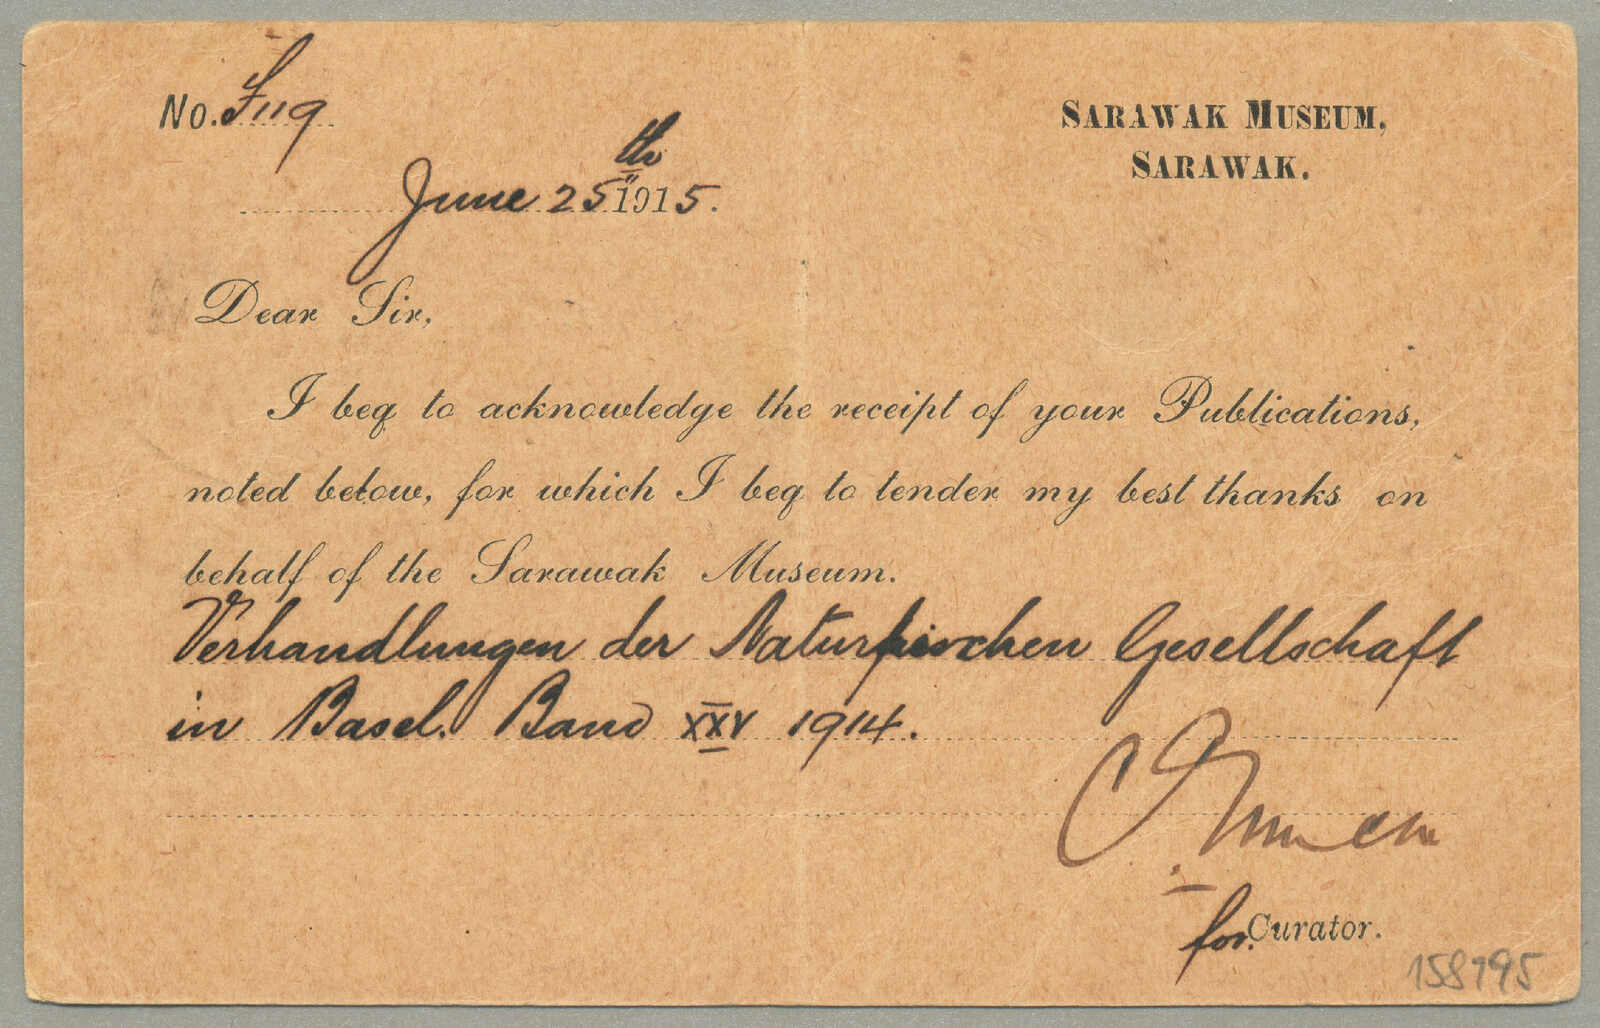 No. F119
SARAWAK MUSEUM,
SARAWAK.
June 25th 1915.
Dear Sir,
I beg to acknowledge the receipt of your Publications,
noted below, for which I beg to tender my best thanks on
behalf of the Sarawak Museum.
Verhandlungen der Gesellschaft
in Basel. Band XXV 1914.
for. Curator.
158795